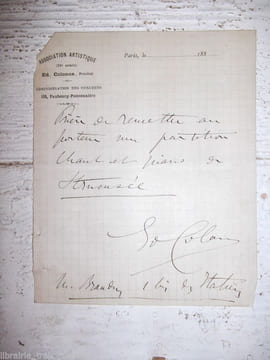 ASSOCIATION ARTISTIQUE
Ed. Colonne, Président
Paris, le 188
ADMINISTRATION DES CONCERTS
Faubourg-Poissonnière
Prière de remettre au
porteur une partition
chant et piano de
Struensée
Ed Colonne
1 bis des Italiens
librairie_trai